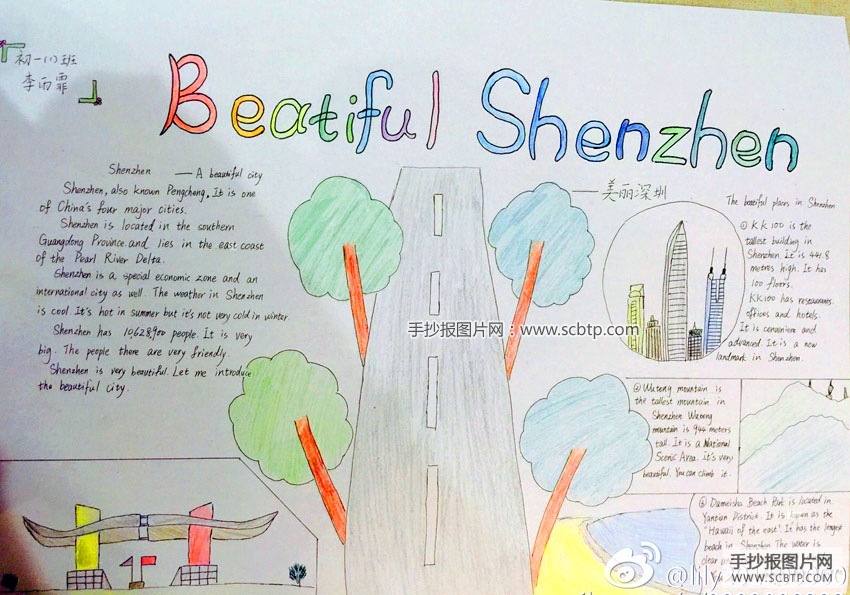 初一(1)班
李雨霏
Beatiful Shenzhen
——美丽深圳
Shenzhen —— A beautiful city
Shenzhen, also known Pengcheng. It is one
of China's four major cities.
Shenzhen is located in the southern
Guangdong Province.and lies in the east coast
of the Pearl River Delta.
Shenzhen is a special economic zone and an
international city as well. The weather in Shenzhen
is cool. It's hot in summer but it's not very cold in winter.
Shenzhen has 10,628,900 people. It is very
big. The people there are very friendly.
Shenzhen is very beautiful. Let me introduce
the beautiful city.
The beatiful places in Shenzhen
① KK 100 is the
tallest building in
Shenzhen. It is 441.8
metres high. It has
100 floors.
KK100 has restaurants,
offices and hotels.
It is convenient and
advanced. It is a new
landmark in Shenzhen.
手抄报图片网：www.scbtp.com
② Wutong mountain is
the tallest mountain in
Shenzhen. Wutong
mountain is 944 meters
tall. It is a National
Scenic Area. It's very
beautiful. You can climb it.
③ Dameisha Beach Park is located in
Yantian District. It is known as the
"Hawaii of the east". It has the longest
beach in Shenzhen. The water is
clear
手抄报图片网
WWW.SCBTP.COM
@lily